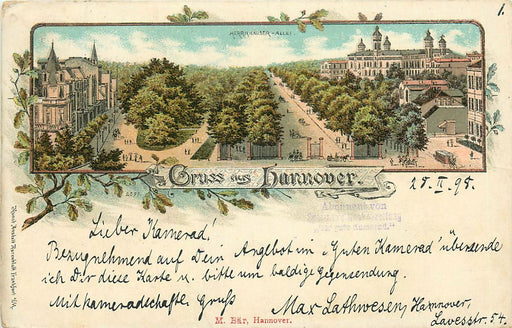 1.
HERRENHÄUSER-ALLEE
Gruss aus Hannover.
28. II. 98.
Abonnent von
"Der gute Kamerad."
Lieber Kamerad!
Bezugnehmend auf Dein Angebot im „Guten Kamerad" übersende
ich Dir diese Karte u. bitte um baldige Gegensendung.
Mit kameradschaftl. Gruß Max Lathwesen, Hannover,
Lavesstr. 54.
M. Bär, Hannover.